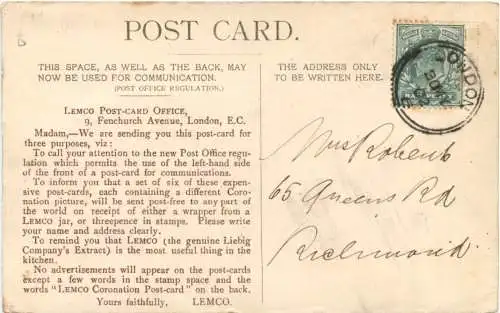 POST CARD.
THIS SPACE, AS WELL AS THE BACK, MAY
NOW BE USED FOR COMMUNICATION.
(POST OFFICE REGULATION.)
LEMCO POST-CARD OFFICE,
9, Fenchurch Avenue, London, E.C.
Madam,—We are sending you this post-card for
three purposes, viz:
To call your attention to the new Post Office regu-
lation which permits the use of the left-hand side
of the front of a post-card for communications.
To inform you that a set of six of these expen-
sive post-cards, each containing a different Coro-
nation picture, will be sent post-free to any part of
the world on receipt of either a wrapper from a
LEMCO jar, or threepence in stamps. Please write
your name and address clearly.
To remind you that LEMCO (the genuine Liebig
Company's Extract) is the most useful thing in the
kitchen.
No advertisements will appear on the post-cards
except a few words in the stamp space and the
words "LEMCO Coronation Post-card" on the back.
Yours faithfully, LEMCO.
THE ADDRESS ONLY
TO BE WRITTEN HERE.
LONDON
Mrs Roberts
65 Queens Rd
Richmond